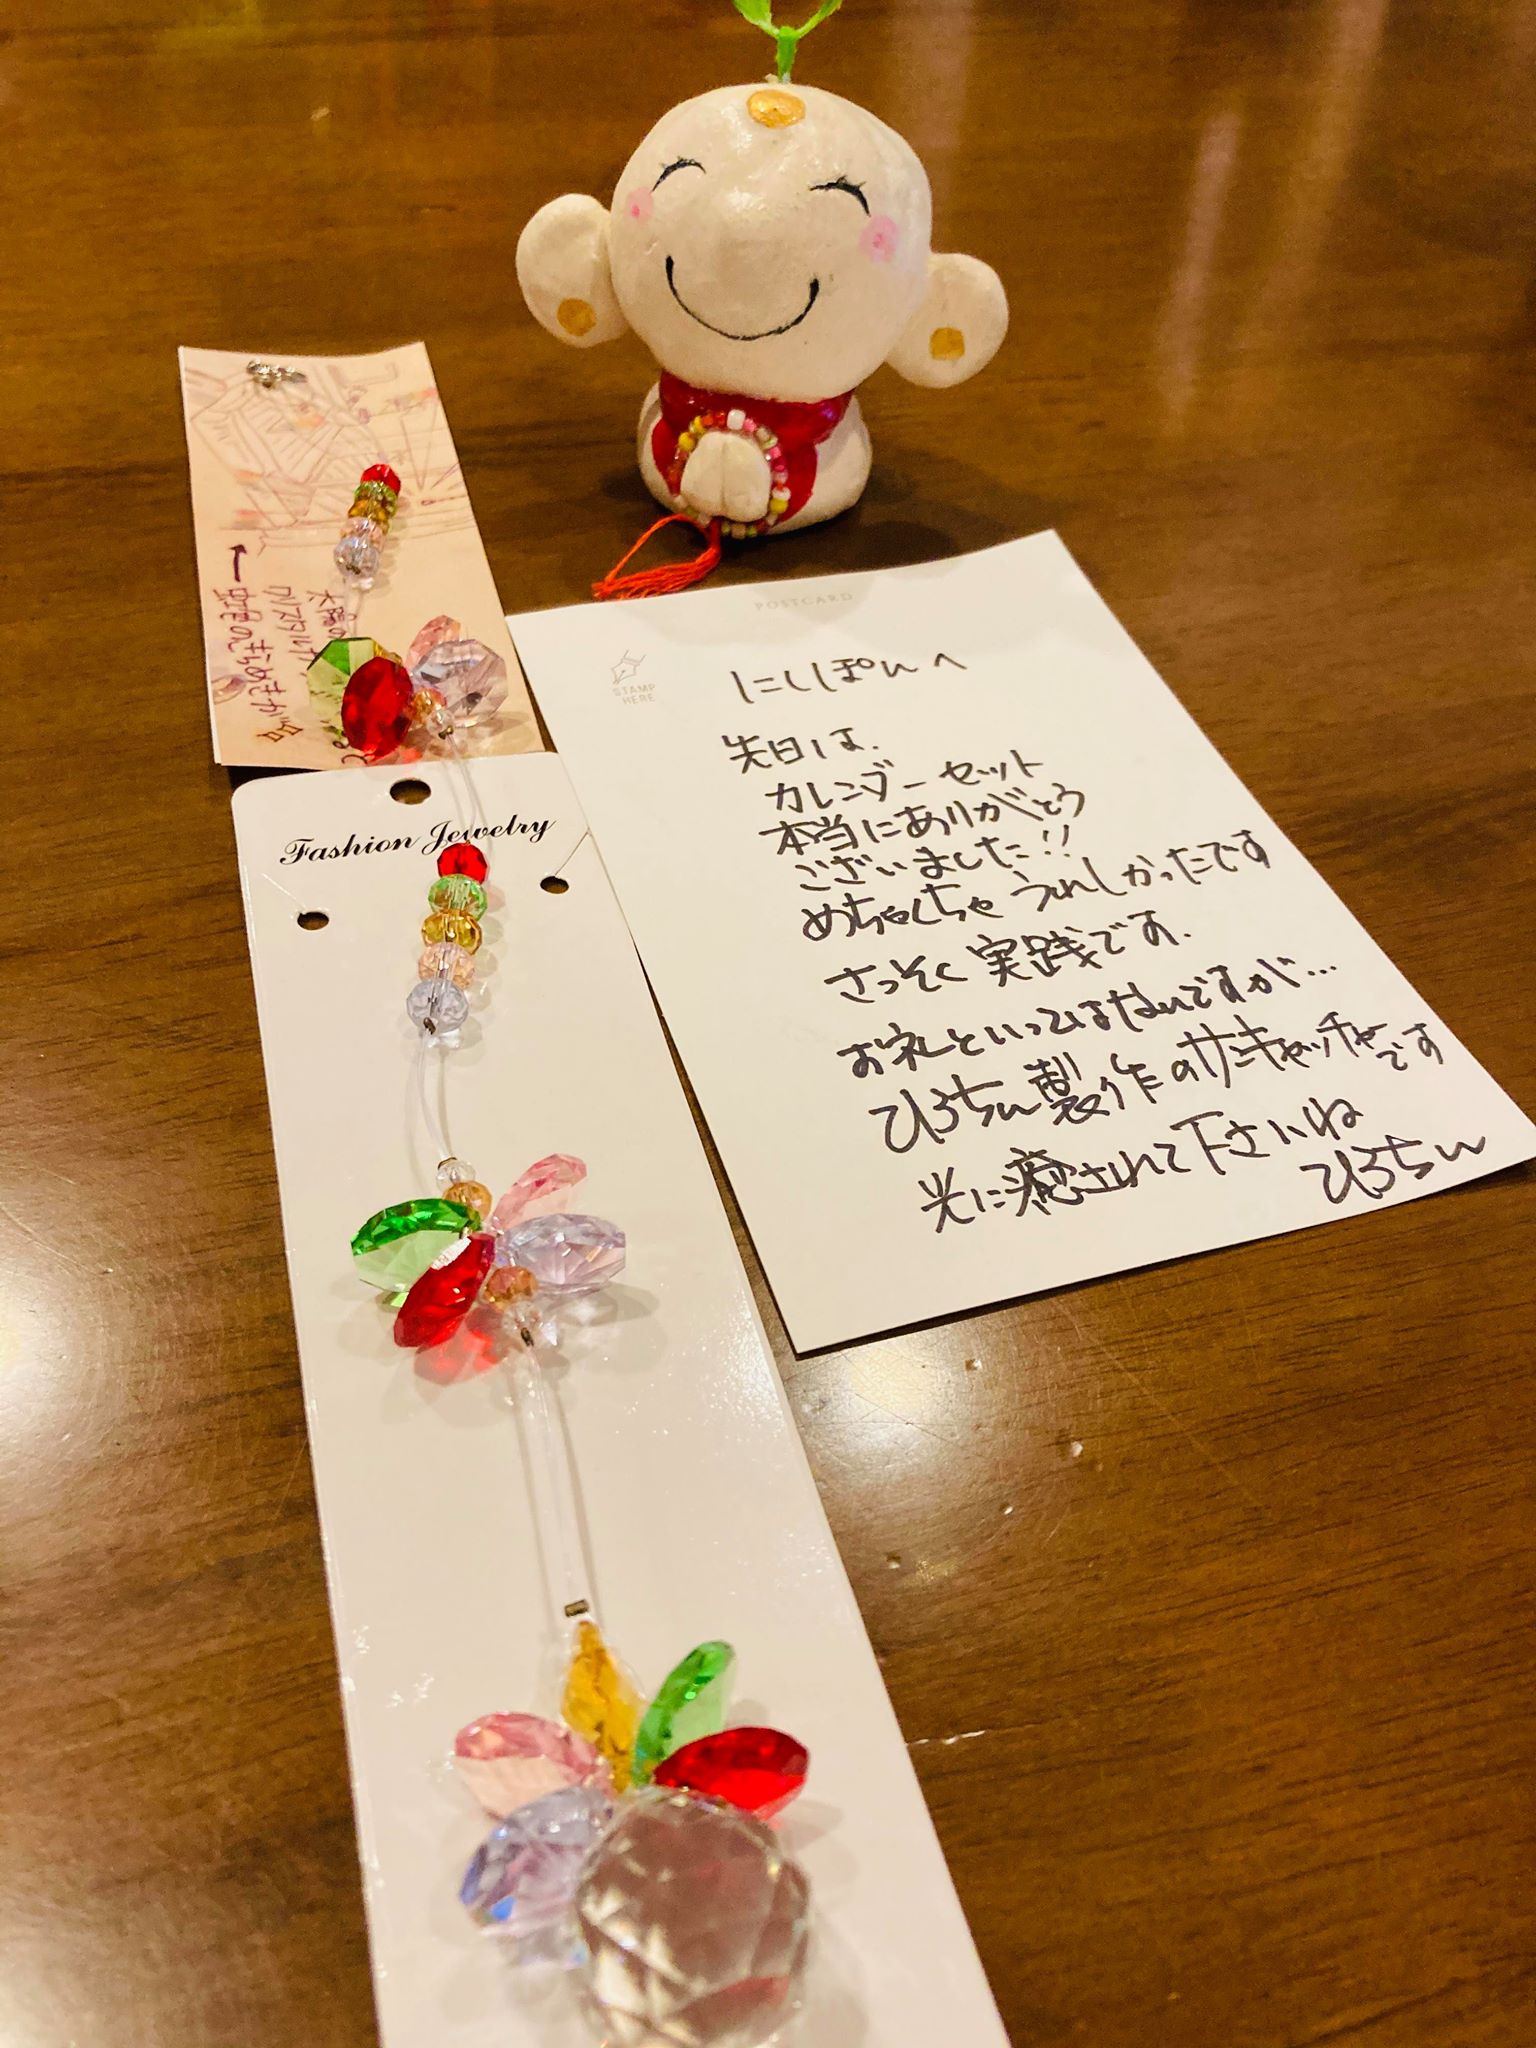 POSTCARD
STAMP
HERE
にしぽんへ
先日は、
カレンダーセット
本当にありがとう
ございました!!
めちゃくちゃ うれしかったです
さっそく実践です。
お礼といってはないですが…
ひろちん製作のサンキャッチャーです
光に癒されて下さいね
ひろちん
Fashion Jewelry
太陽の
クリスタル
虹色のきらめきが